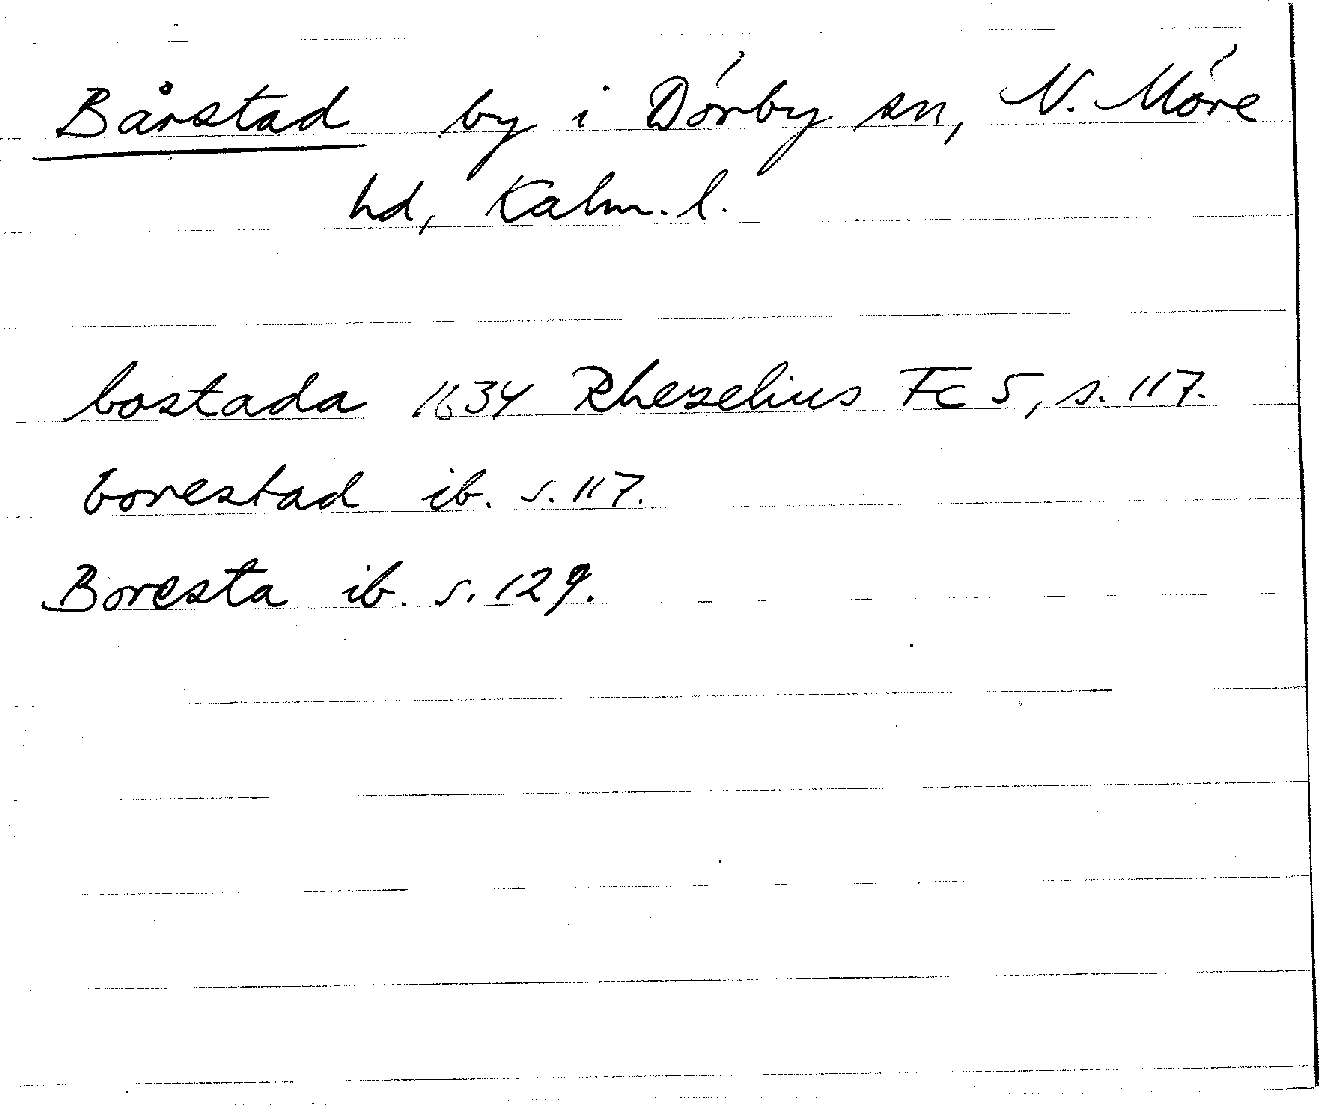 Bårstad by i Dörby sn, N. Möre
hd, Kalm. l.
bostada 1634 Rhezelius Fc 5, s. 117.
borestad ib. s. 117.
Boresta ib. s. 129.